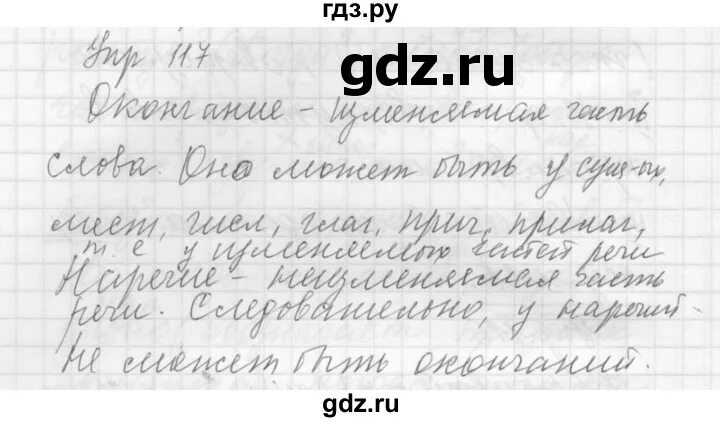 гдз.ру
gdz.ru
Упр 117
Окончание - изменяемая часть
слова. Оно может быть у сущ-ых,
мест, числ, глаг, прич, прилаг,
т. е у изменяемых частей речи
Наречие - неизменяемая часть
речи. Следовательно, у наречий
не может быть окончаний.
gdz.ru